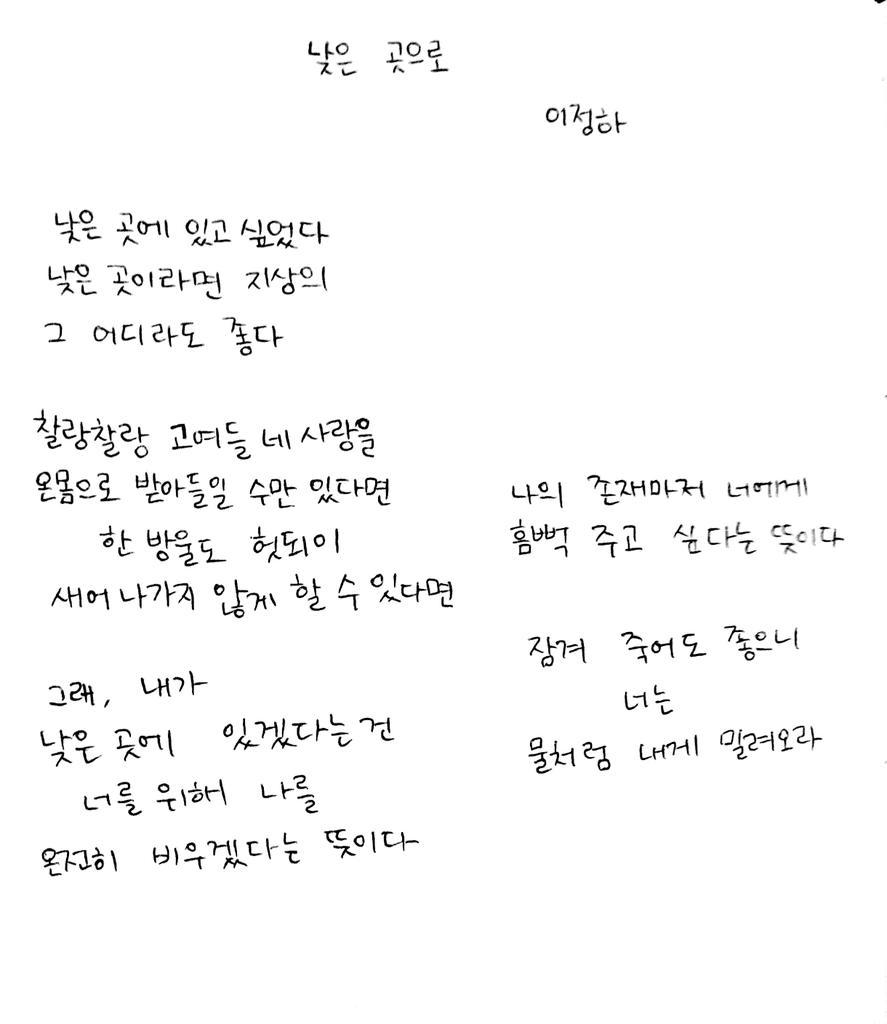 낮은 곳으로
이정하
낮은 곳에 있고 싶었다
낮은 곳이라면 지상의
그 어디라도 좋다
찰랑찰랑 고여들 네 사랑을
온몸으로 받아들일 수만 있다면
한 방울도 헛되이
새어 나가지 않게 할 수 있다면
그래, 내가
낮은 곳에 있겠다는 건
너를 위해 나를
온전히 비우겠다는 뜻이다
나의 존재마저 너에게
흠뻑 주고 싶다는 뜻이다
잠겨 죽어도 좋으니
너는
물처럼 내게 밀려오라